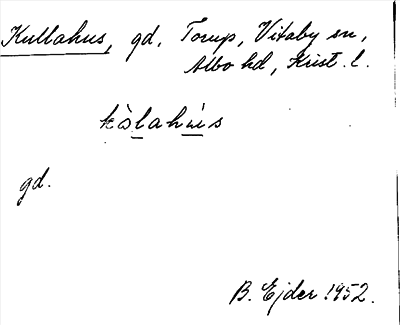 Kullahus, gd, Torup, Vitaby sn,
Albo hd, Krist. l.
kòlahùs
gd.
B. Ejder 1952.